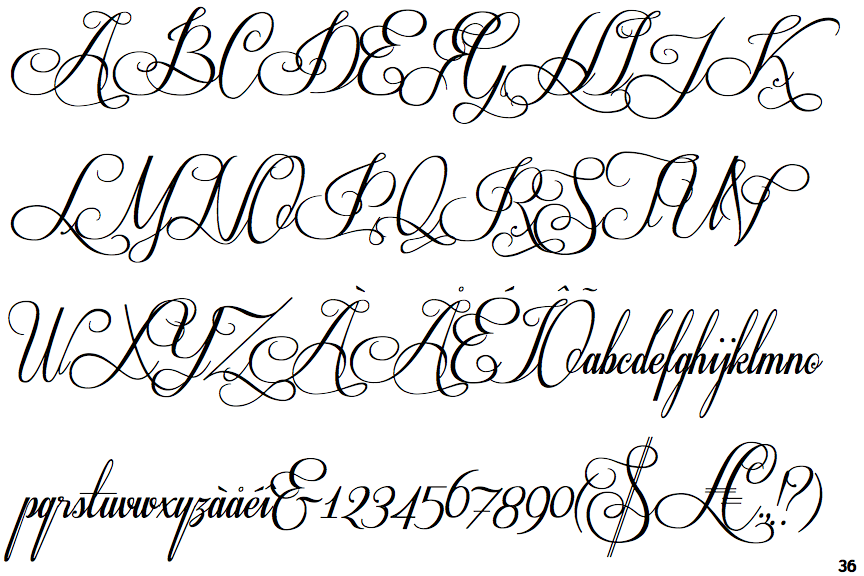 ABCDEFGHIJK
LMNOPQRSTUV
WXYZÀÅÉÎÕabcdefghijklmno
pqrstuvwxyzàåéîõ&1234567890($£€.,!?)
36